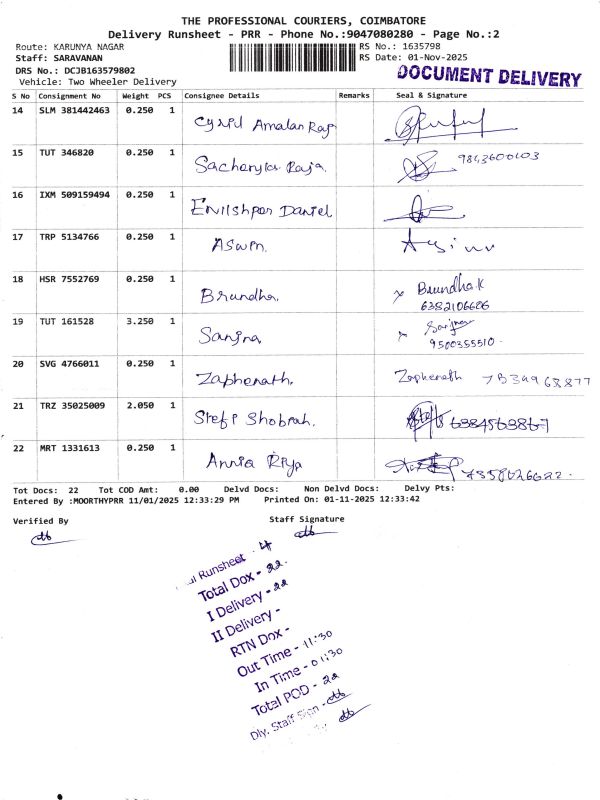 THE PROFESSIONAL COURIERS, COIMBATORE
Delivery Runsheet - PRR - Phone No.:9047080280 - Page No.:2
Route: KARUNYA NAGAR RS No.: 1635798
Staff: SARAVANAN RS Date: 01-Nov-2025
DRS No.: DCJB163579802 DOCUMENT DELIVERY
Vehicle: Two Wheeler Delivery
S No Consignment No Weight PCS Consignee Details Remarks Seal & Signature
14 SLM 381442463 0.250 1 Cyril Amalan Raj
15 TUT 346820 0.250 1 Sacharyia Raja. 9843600103
16 IXM 509159494 0.250 1 Daniel
17 TRP 5134766 0.250 1 Aswin.
18 HSR 7552769 0.250 1 Brundha. x Brundha.K
6382106626
19 TUT 161528 3.250 1 Sanjna. x Sanjna
9500355510.
20 SVG 4766011 0.250 1 Zaphenath. Zaphenath
21 TRZ 35025009 2.050 1 Stefi Shobrah.
22 MRT 1331613 0.250 1 Annia Riya 7358026622.
Tot Docs: 22 Tot COD Amt: 0.00 Delvd Docs: Non Delvd Docs: Delvy Pts:
Entered By :MOORTHYPRR 11/01/2025 12:33:29 PM Printed On: 01-11-2025 12:33:42
Verified By Staff Signature
Runsheet - 4
Total Dox - 22.
I Delivery - 22
II Delivery -
RTN Dox -
Out Time - 11:30
In Time - 01:30
Total POD - 22
Dly. Staff Sign -